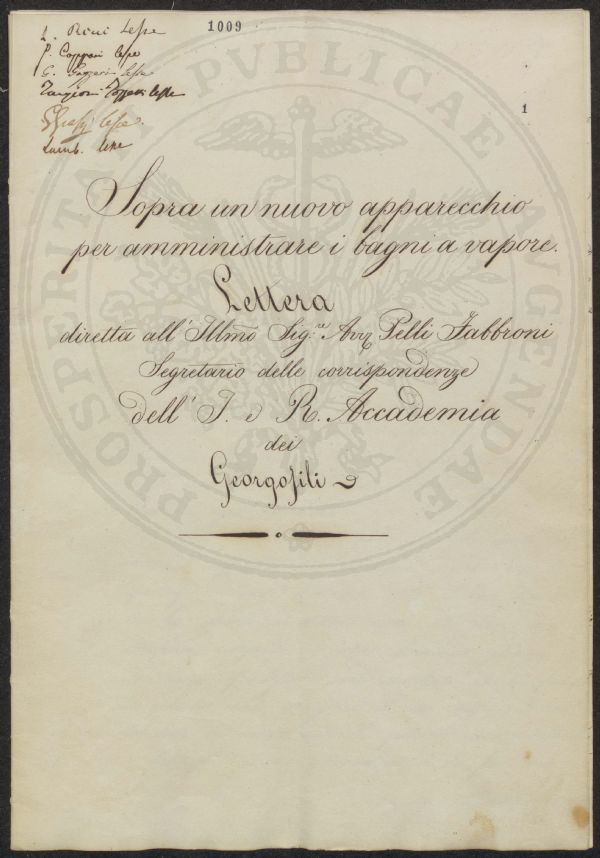 1009
L. Ricci lesse
P. Capponi lesse
G. Gazzeri lesse
Targioni Tozzetti lesse
lesse
Lamb. lesse
1
Sopra un nuovo apparecchio
per amministrare i bagni a vapore.
Lettera
diretta all' Illmo Sig.re Avv Pelli Fabbroni
Segretario delle corrispondenze
dell' I. e R. Accademia
dei
Georgofili
PROSPERITATI PVBLICAE AVGENDAE